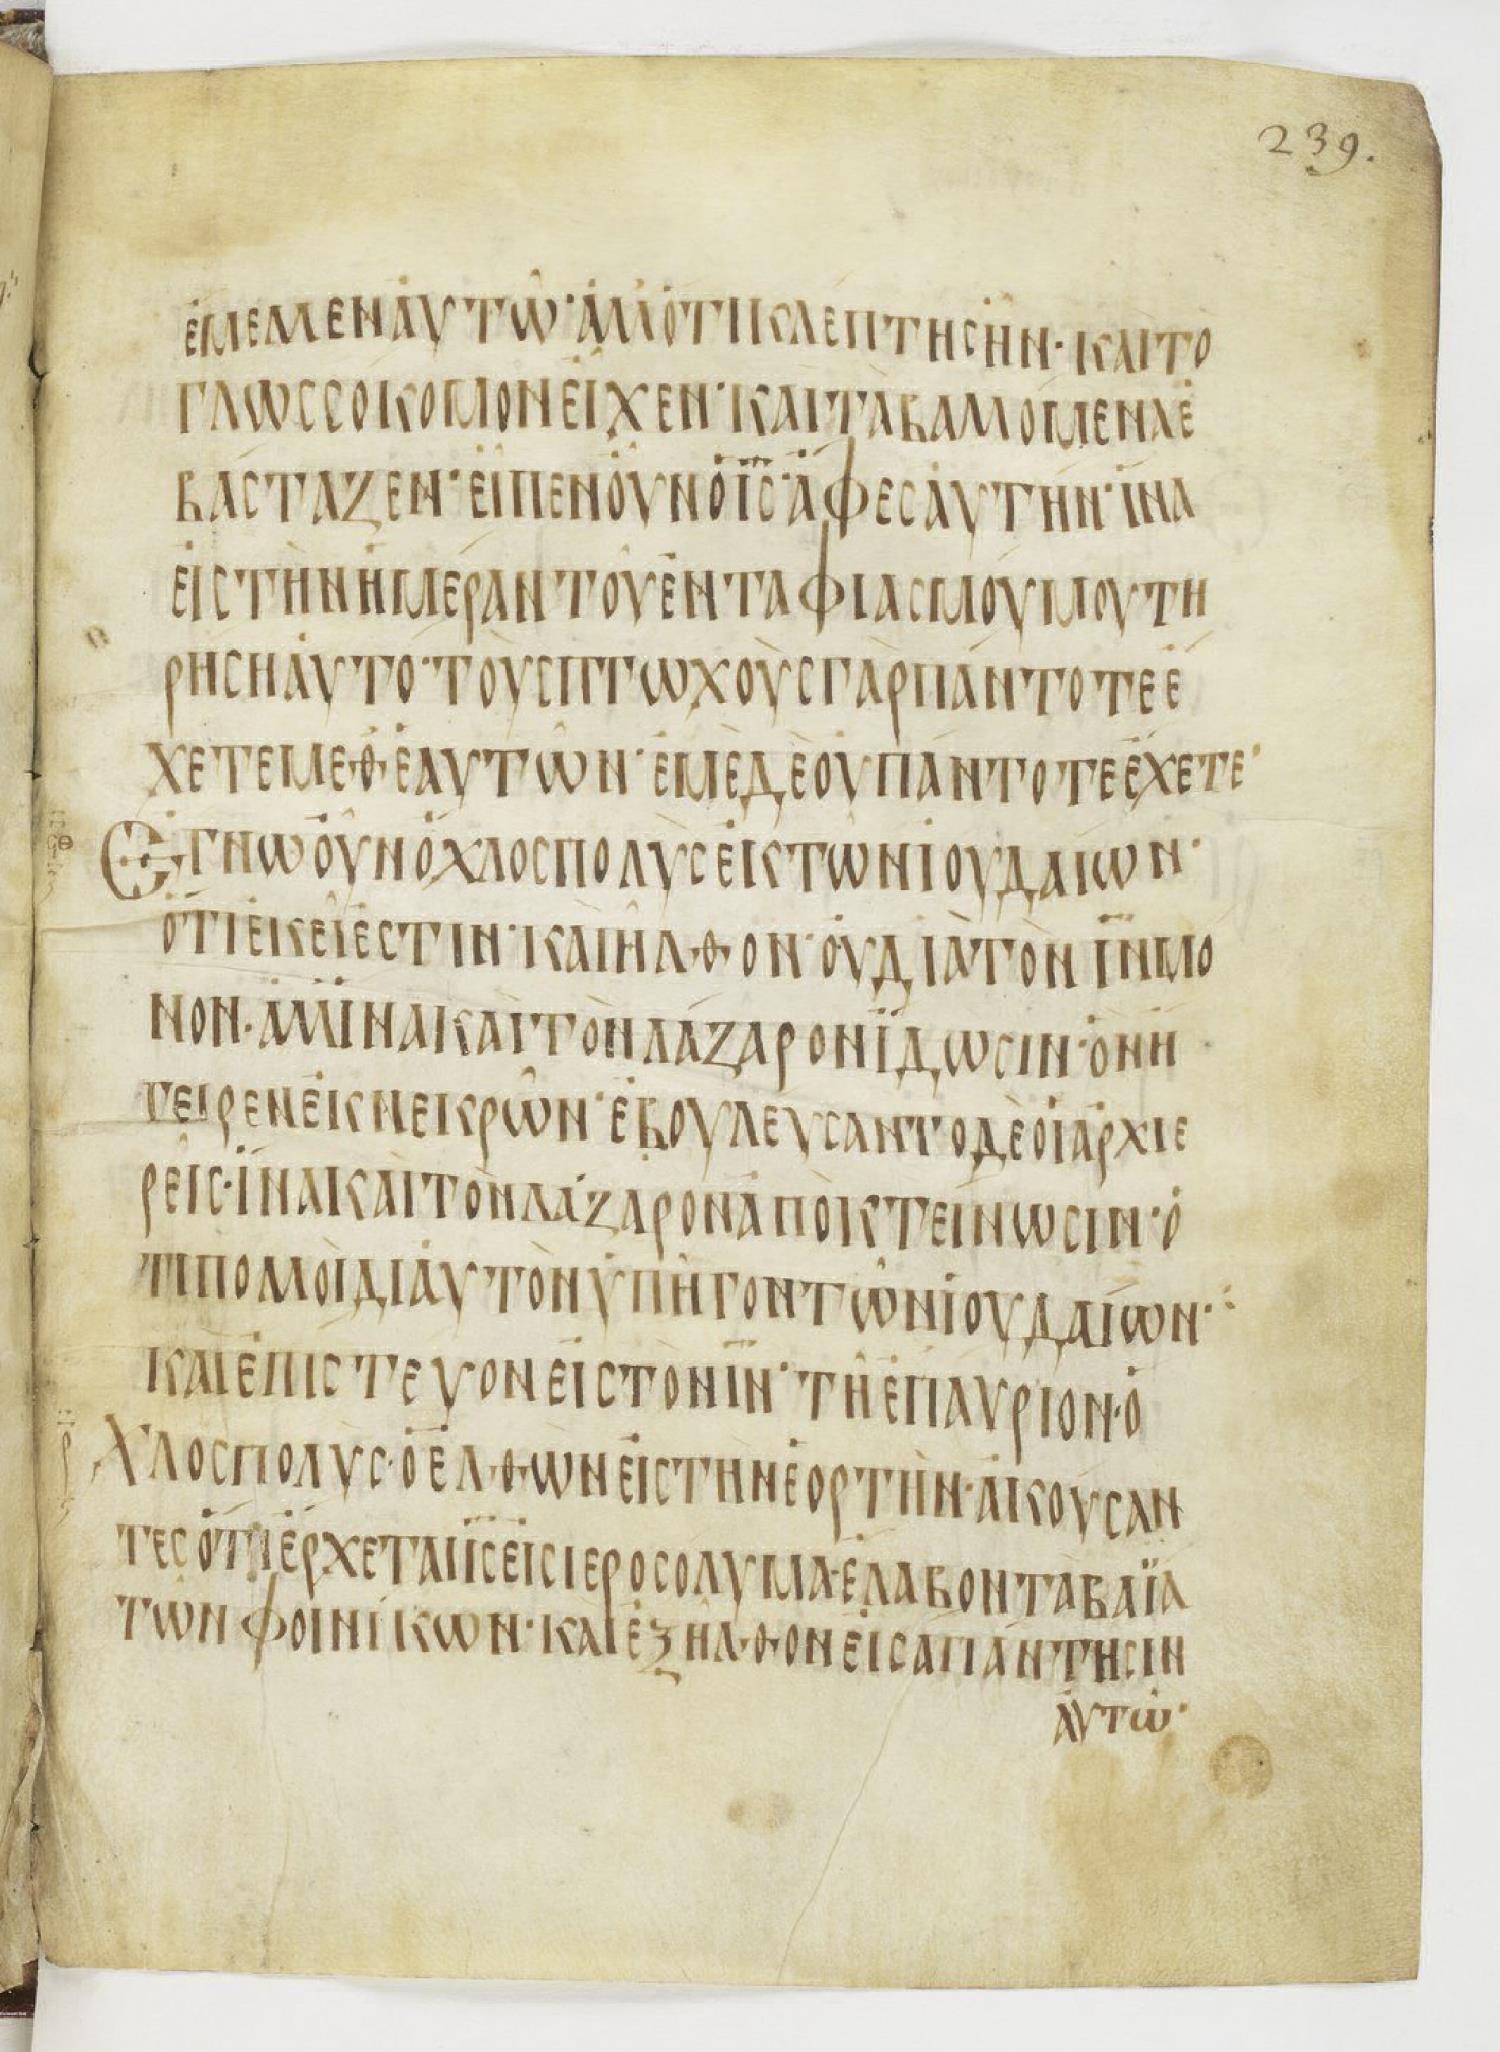 239.
ἐμεμεναὐτῶ· ἀλλὁτικλεπτησἦν· καιτο
γλωσσοκομονεἶχεν· καιτὰβαλλομεναἐ
βασταζεν· εἶπενοὖνὁις· ἀφεσαὐτην· ἵνα
εἰςτὴνἡμεραντοῦἐνταφιασμοῦμουτη
ρησηαὐτο· τοὺςπτωχοὺςγὰρπάντοτεἐ
χετεμεθἑαυτῶν· ἐμὲδὲοὐπάντοτεἔχετε·
Εγνωοὖνὄχλοςπολὺςἐκτῶνἰουδαίων·
ὅτιἐκεῖἐστιν· καὶἦλθον· οὐδιὰτὸνινμο
νον· ἀλλἵνακαὶτὸνλάζαρονἴδωσιν· ὃνἤ
γειρενἐκνεκρῶν· ἐβουλεύσαντοδὲοἱἀρχιε
ρεῖς· ἵνακαὶτὸνλάζαρονἀποκτείνωσιν· ὁ
τιπολλοὶδιαὐτὸνὑπῆγοντῶνἰουδαίων·
καὶἐπιστευονεἰςτὸνιν· τῆἐπαυριον· ὁ
χλοςπολυς· ὁἐλθωνεἰςτὴνἑορτὴν· ἀκούσαν
τεςὅτιἔρχεταιιςεἰςιεροσολυμα· ἐλαβοντὰβαϊα
τῶνφοινίκων· καὶἐξῆλθονεἰςαπάντησιν
αὐτῶ·